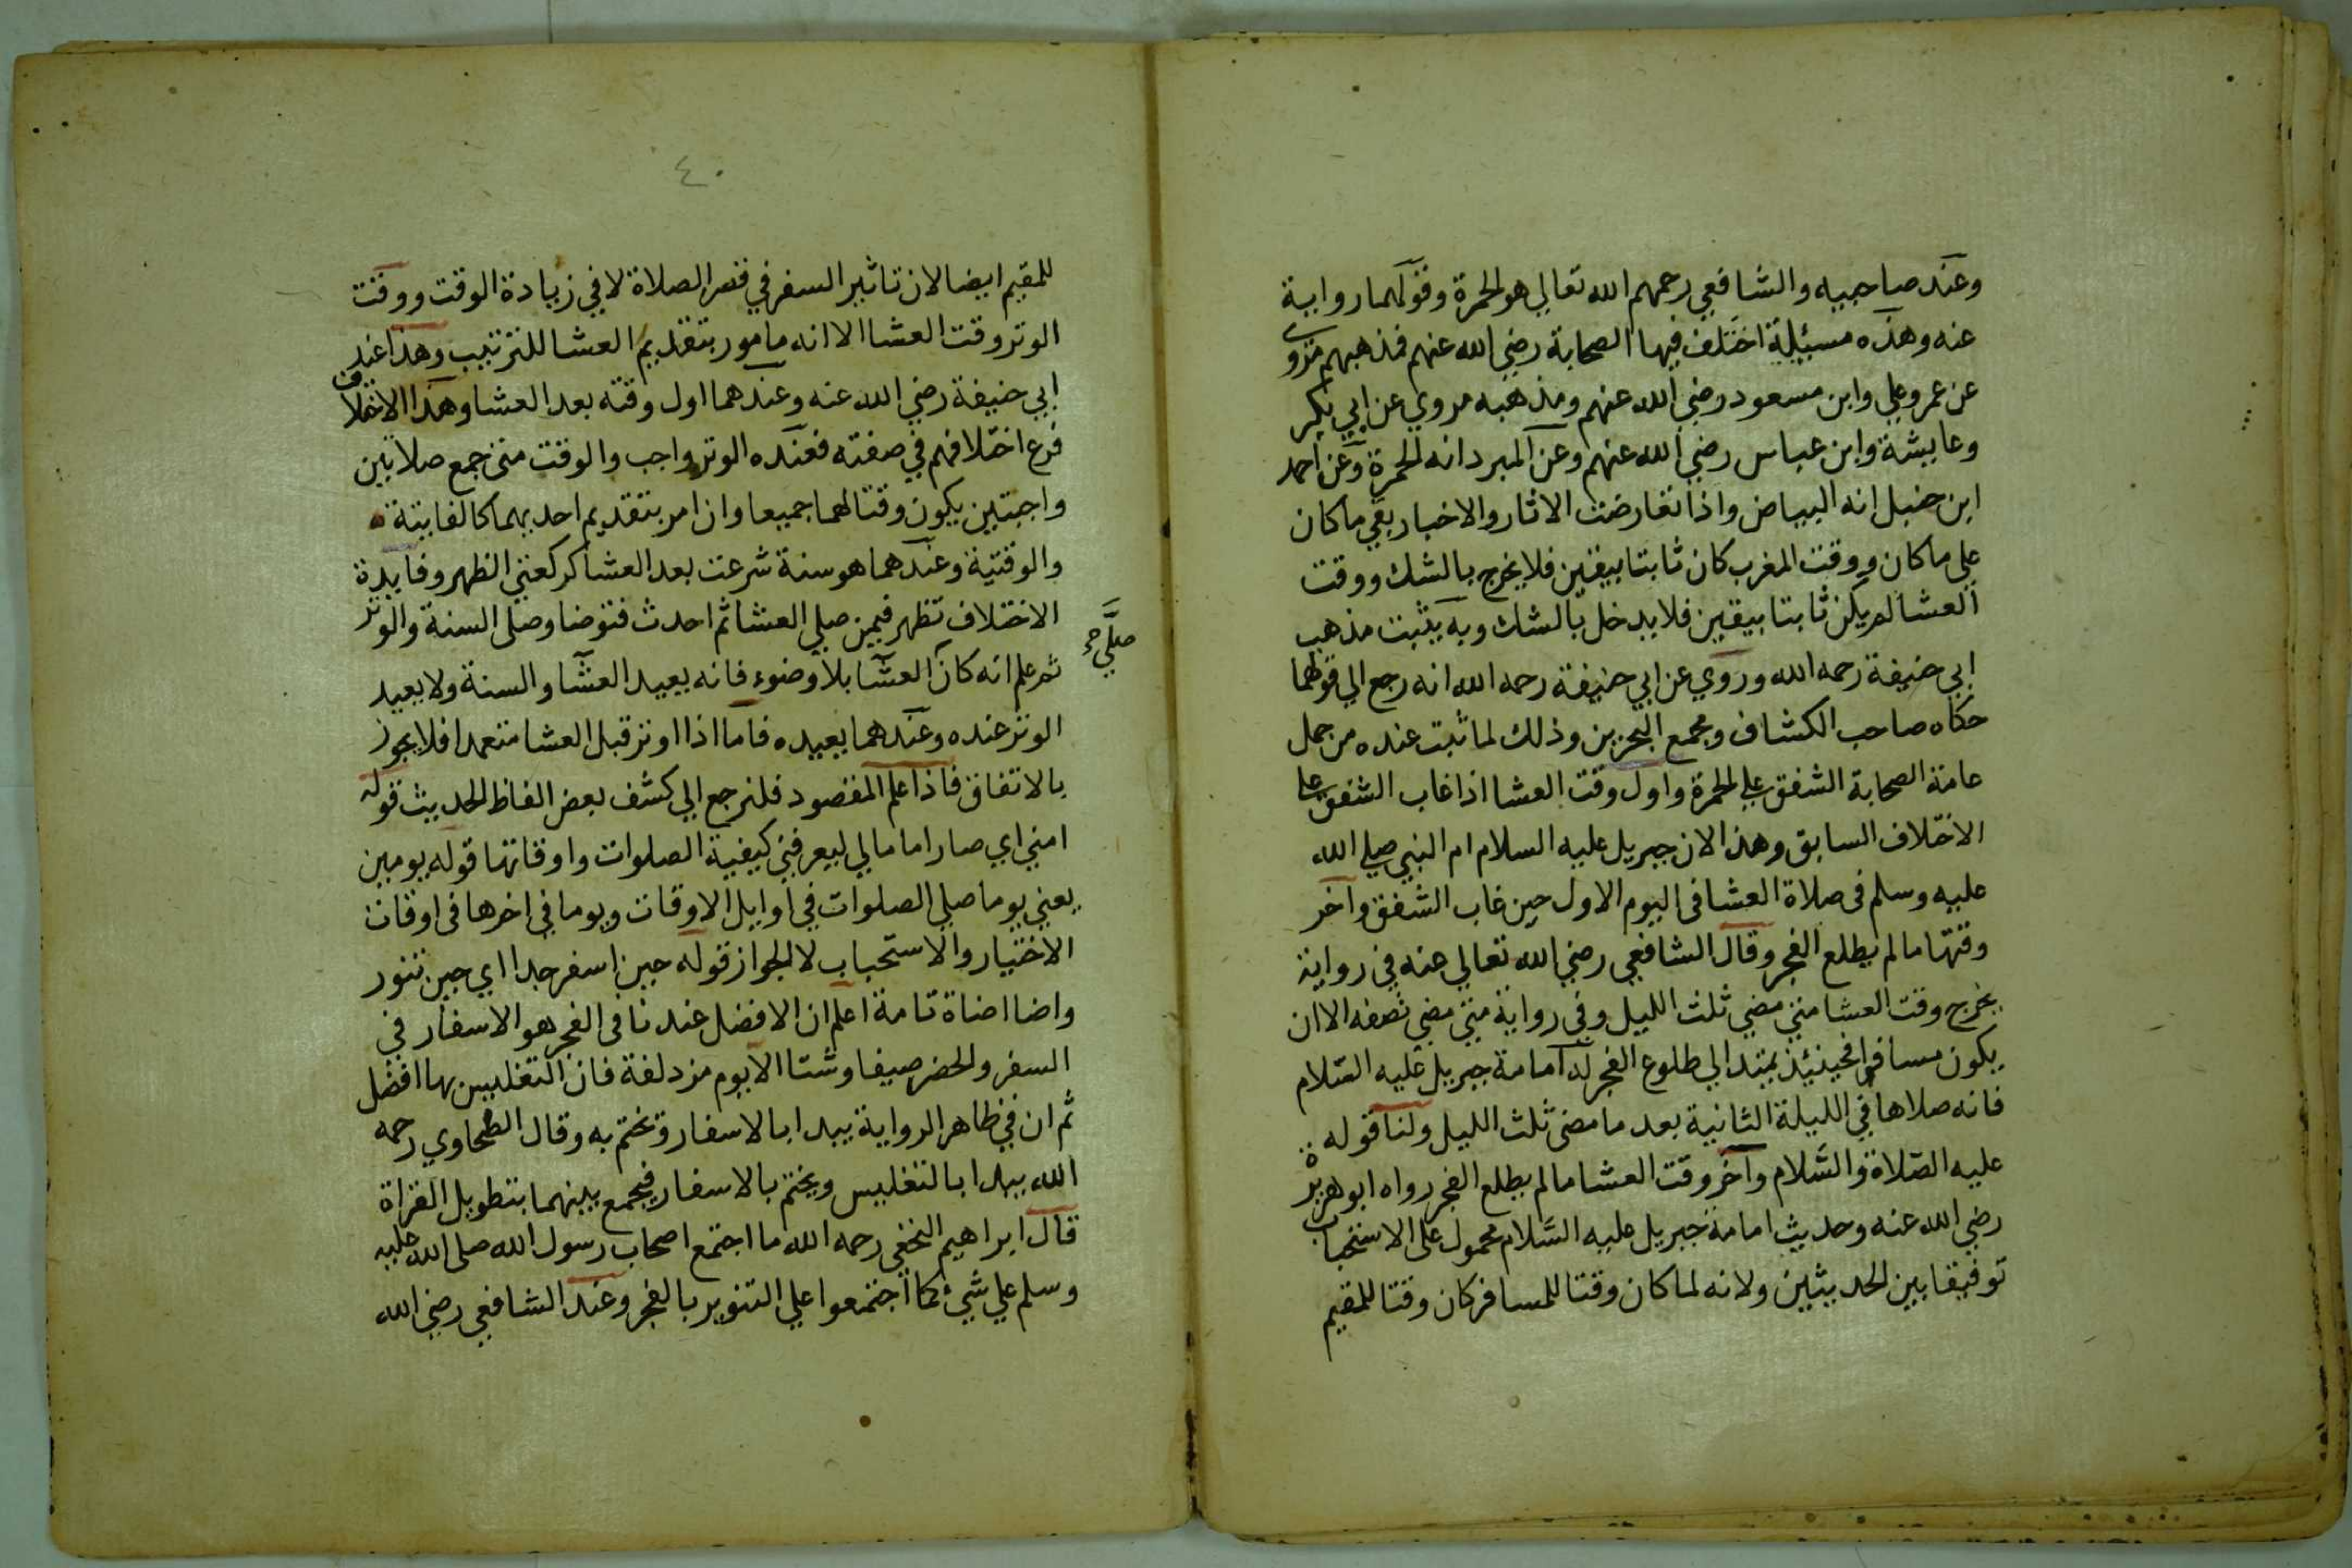 وعند صاحبيه والشافعي رحمهم الله تعالي هو الحمرة وقولهما رواية
عنه وهذه مسئلة اختلف فيها الصحابة رضي الله عنهم فمذهبهم مروى
عن عمر وعلي وابن مسعود رضي الله عنهم ومذهبه مروي عن ابي بكر
وعايشة وابن عباس رضي الله عنهم وعن المبرد انه الحمرة وعن احمد
ابن حنبل انه البياض واذا تعارضت الاثار والاخبار بقي ما كان
علي ما كان ووقت المغرب كان ثابتا بيقين فلا يخرج بالشك ووقت
العشا لم يكن ثابتا بيقين فلا يدخل بالشك وبه يثبت مذهب
ابي حنيفة رحمه الله وروي عن ابي حنيفة رحمه الله انه رجع الي قولهما
حكاه صاحب الكشاف ومجمع البحرين وذلك لما ثبت عنده من حمل
عامة الصحابة الشفق علي الحمرة واول وقت العشا اذا غاب الشفق علي
الاختلاف السابق وهذا لان جبريل عليه السلام ام النبي صلي الله
عليه وسلم فى صلاة العشا فى اليوم الاول حين غاب الشفق وآخر
وقتها ما لم يطلع الفجر وقال الشافعي رضي الله تعالي عنه في رواية
يخرج وقت العشا متي مضي ثلث الليل وفي رواية متي مضي نصفه الا ان
يكون مسافرا فحينئذ يمتد الي طلوع الفجر له امامة جبريل عليه السّلام
فانه صلاها في الليلة الثانية بعد ما مضى ثلث الليل ولنا قوله
عليه الصّلاة والسَّلام وآخر وقت العشا ما لم يطلع الفجر رواه ابو هريرة
رضي الله عنه وحديث امامة جبريل عليه السَّلام محمول على الاستحباب
توفيقا بين الحديثين ولانه لما كان وقتا للمسافر كان وقتا للمقيم
٤٠
للمقيم ايضا لان تاثير السفر في قصر الصلاة لا في زيادة الوقت ووقت
الوتر وقت العشا الا انه مامور بتقديم العشا للترتيب وهذا عند
ابي حنيفة رضي الله عنه وعندهما اول وقته بعد العشا وهذا الاختلاف
فرع اختلافهم في صفته فعنده الوتر واجب والوقت متى جمع صلاتين
واجبتين يكون وقتا لهما جميعا وان امر بتقديم احديهما كالفايتة
والوقتية وعندهما هو سنة شرعت بعد العشا كركعتي الظهر وفايدة
الاختلاف تظهر فيمن صلي العشا ثم احدث فتوضا وصلى السنة والوتر
ثم علم انه كان العشا بلا وضوء فانه يعيد العشا والسنة ولا يعيد
صلَّي
الوتر عنده وعندهما يعيده فاما اذا اوتر قبل العشا متعمدا فلا يجوز
بالاتفاق فاذا علم المقصود فلنرجع الي كشف بعض الفاظ الحديث قوله
امني اي صار اماما لي ليعرفني كيفية الصلوات واوقاتها قوله يومين
يعني يوما صلي الصلوات في اوايل الاوقات ويوما في اخرها فى اوقات
الاختيار والاستحباب لا الجواز قوله حين اسفر جدا اي حين تنور
واضا اضاة تامة اعلم ان الافضل عندنا فى الفجر هو الاسفار في
السفر والحضر صيفا وشتا الا يوم مزدلفة فان التغليس بها افضل
ثم ان في ظاهر الرواية يبدا بالاسفار وتختم به وقال الطحاوي رحمه
الله يبدا بالتغليس ويختم بالاسفار فيجمع بينهما بتطويل القراة
قال ابراهيم النخعي رحمه الله ما اجتمع اصحاب رسول الله صلى الله عليه
وسلم علي شيء كما اجتمعوا علي التنوير بالفجر وعند الشافعي رضي الله